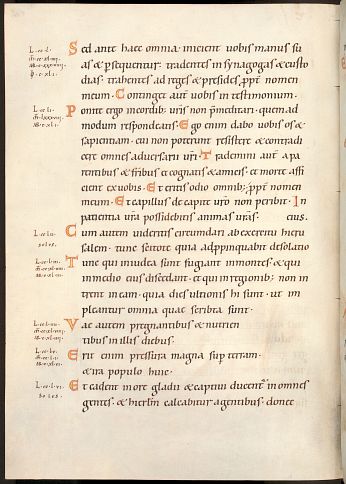 Sed ante haec omnia inicient uobis manus su
as & p̄sequentur. tradentes in synagogas & custo
dias. trahentes ad reges & presides ppt̄ nomen
meum. Continget aut̄ uobis in testimonium.
Ponite ergo incordib; ur̄is non p̄meditari. quemad
modum respondeatis. Ego enim dabo uobis os &
sapientiam. cui non poterint resistere & contradi
cere omnes aduersarii ur̄i. Trademini aut̄ apa
rentibus & fr̄ibus & cognatis & amicis. & morte affi
cient exuobis. Et eritis odio omnib; ppt̄ nomen
meum. Et capillus de capite ur̄o non peribit. In
patientia ur̄a possidebitis animas ur̄as. eius.
Cum autem uideritis circumdari abexercitu hieru
salem. tunc scitote quia adppinquabit desolatio
Tunc qui iniudea sunt fugiant inmontes. & qui
inmedio eius discedant. et qui inregionib; non in
trent ineam. quia dies ultionis hi sunt. ut im
pleantur omnia quae scribta sunt.
Vae autem pregnantibus & nutrien
tibus inillis diebus.
Erit enim pressura magna sup terram.
& ira populo huic.
Et cadent inore gladii & captiui ducent᷑ in omnes
gentes. & hierl̄m calcabitur agentibus. donec